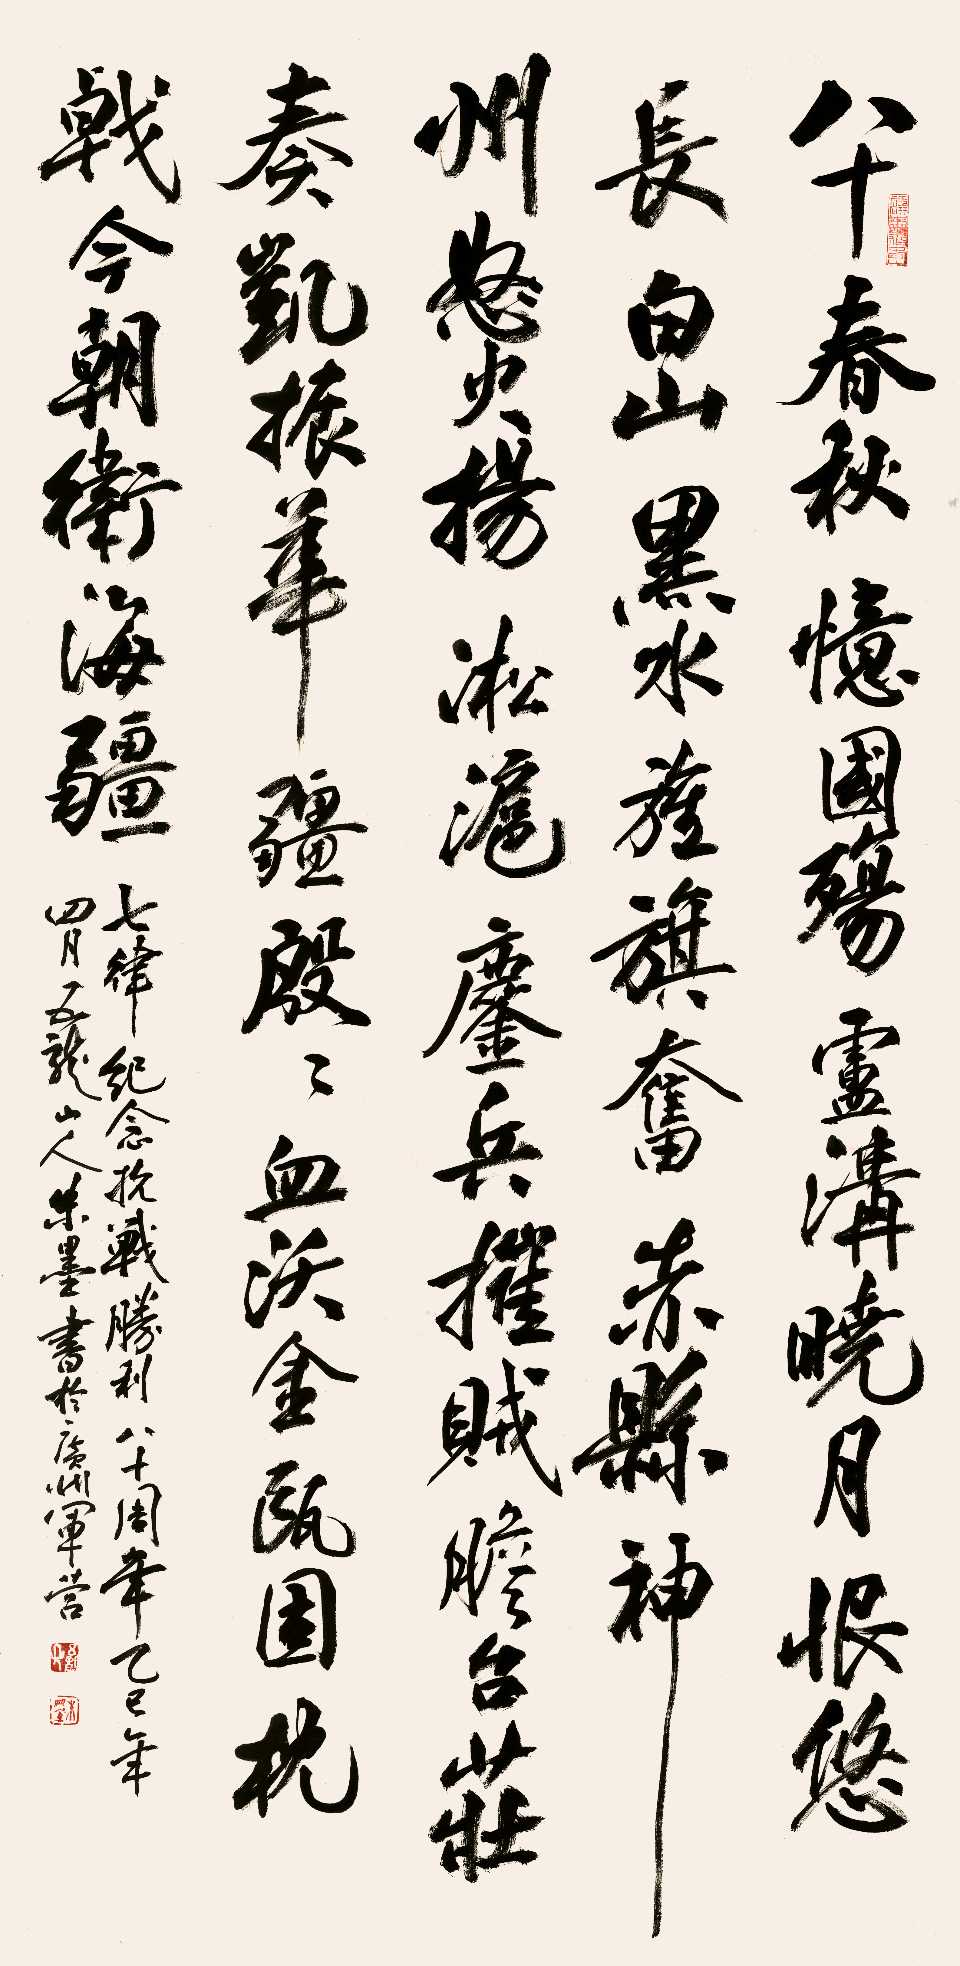 八十春秋憶國殤盧溝曉月恨悠
長白山黑水旌旗奮赤縣神
州怒火揚淞滬鏖兵摧賊膽台莊
奏凱振華疆殷殷血沃金甌固枕
戟今朝衛海疆
七律紀念抗戰勝利八十周年乙巳年
四月五龍山人朱墨書於廣州軍營